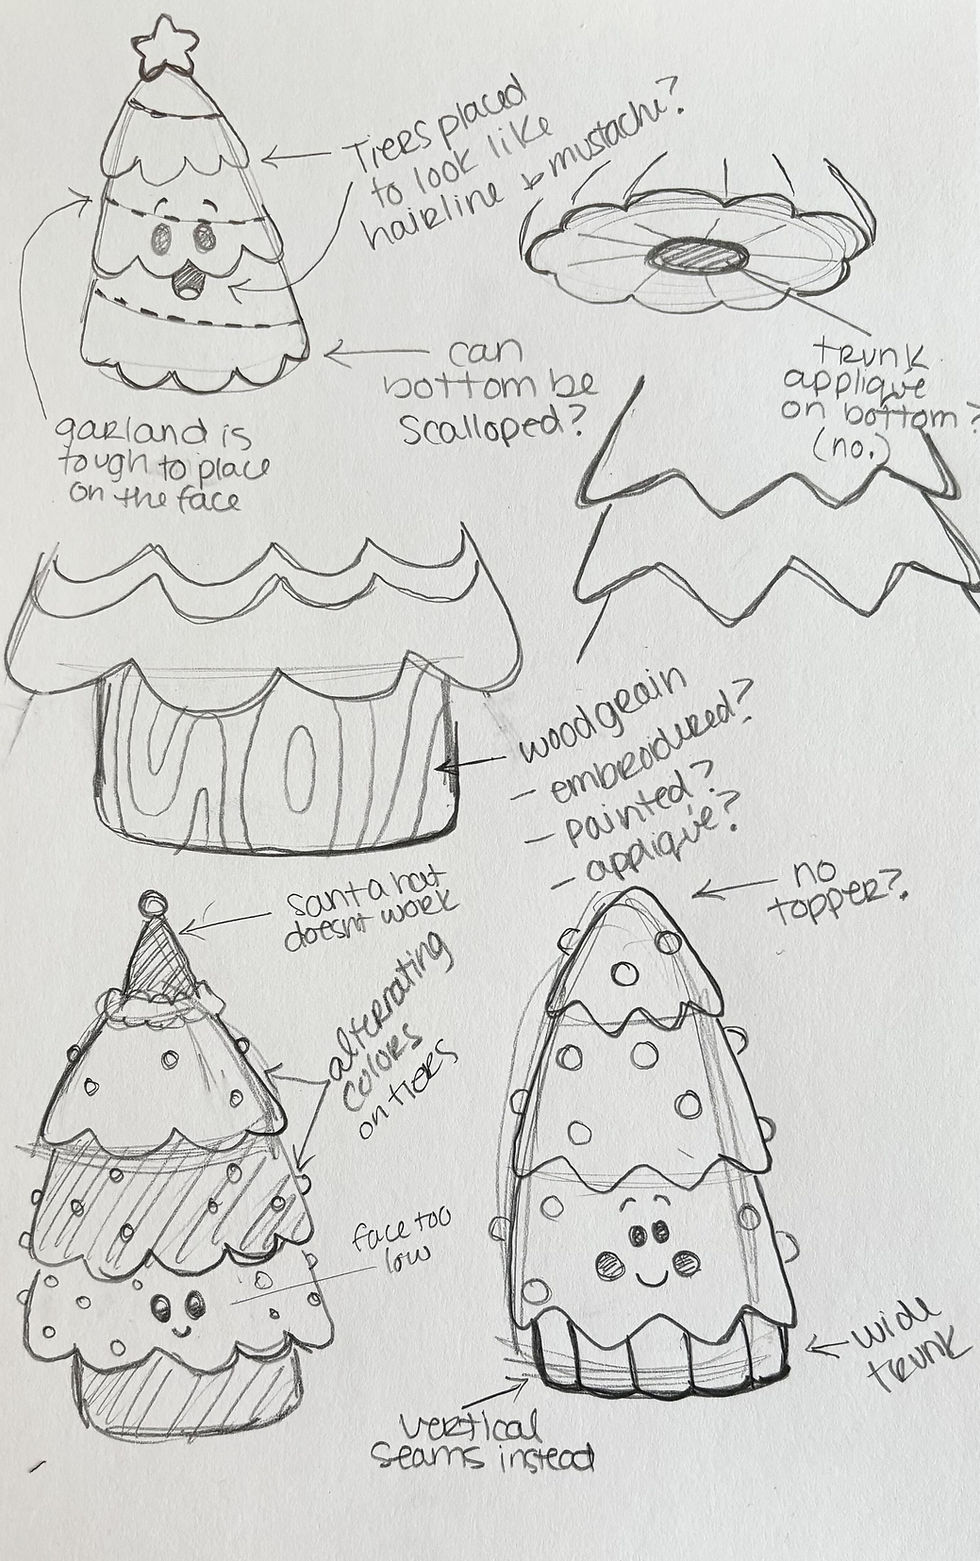 Tiers placed
to look like
hairline & mustache?
can
bottom be
scalloped?
garland is
tough to place
on the face
trunk
appliqué
on bottom?
(no.)
woodgrain
- embroidured?
- painted?
- appliqué?
santa hat
doesnt work
no
topper?
alternating
colors
on tiers
face too
low
wide
trunk
vertical
seams instead